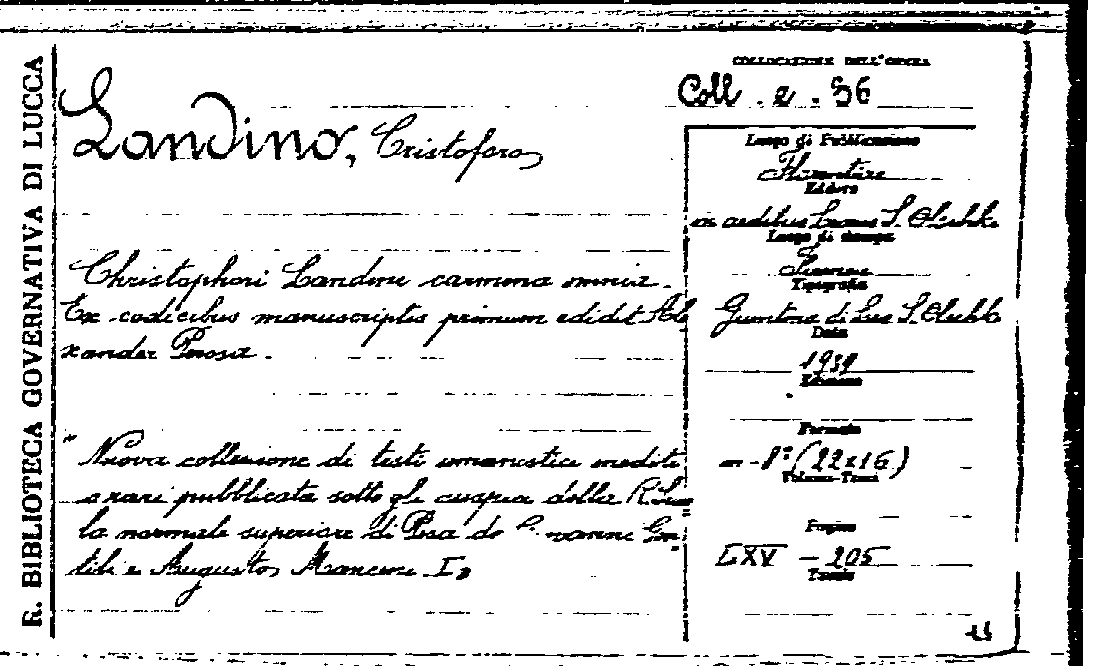 R. BIBLIOTECA GOVERNATIVA DI LUCCA
COLLOCAZIONE DELL'OPERA
Coll. e. 36
Landino, Cristoforo
Christophori Landini carmina omnia.
Ex codicibus manuscriptis primum edidit Ale
xander Perosa.
"Nuova collezione di testi umanistici inediti
o rari pubblicata sotto gli auspici della R. Scuo
la normale superiore di Pisa da Giovanni Gen
tile e Augusto Mancini I"
Luogo di Pubblicazione
Florentiae
Editore
in aedibus Leonis S. Olschki
Luogo di stampa
Firenze
Tipografia
Giuntina di Leo S. Olschki
Data
1939
Edizione
Formato
in-8° (22x16)
Volume-Tomi
Pagine
LXV - 205
Tavole